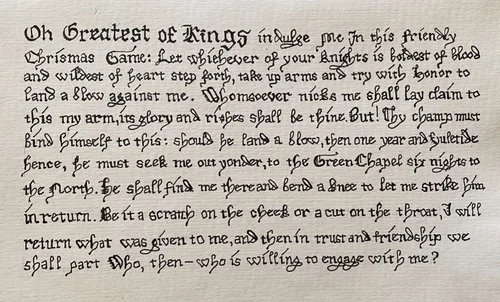 Oh Greatest of Kings indulge me in this friendly
Chrismas Game: Let whichever of your knights is boldest of blood
and wildest of heart step forth, take up arms and try with honor to
land a blow against me. Whomsoever nicks me shall lay claim to
this my arm, its glory and riches shall be thine. But! Thy champ must
bind himself to this: should he land a blow, then one year and Yuletide
hence, he must seek me out yonder, to the Green Chapel six nights to
the North. He shall find me there and bend a knee to let me strike him
in return. Be it a scratch on the cheek or a cut on the throat, I will
return what was given to me, and then in trust and friendship we
shall part Who, then - who is willing to engage with me?